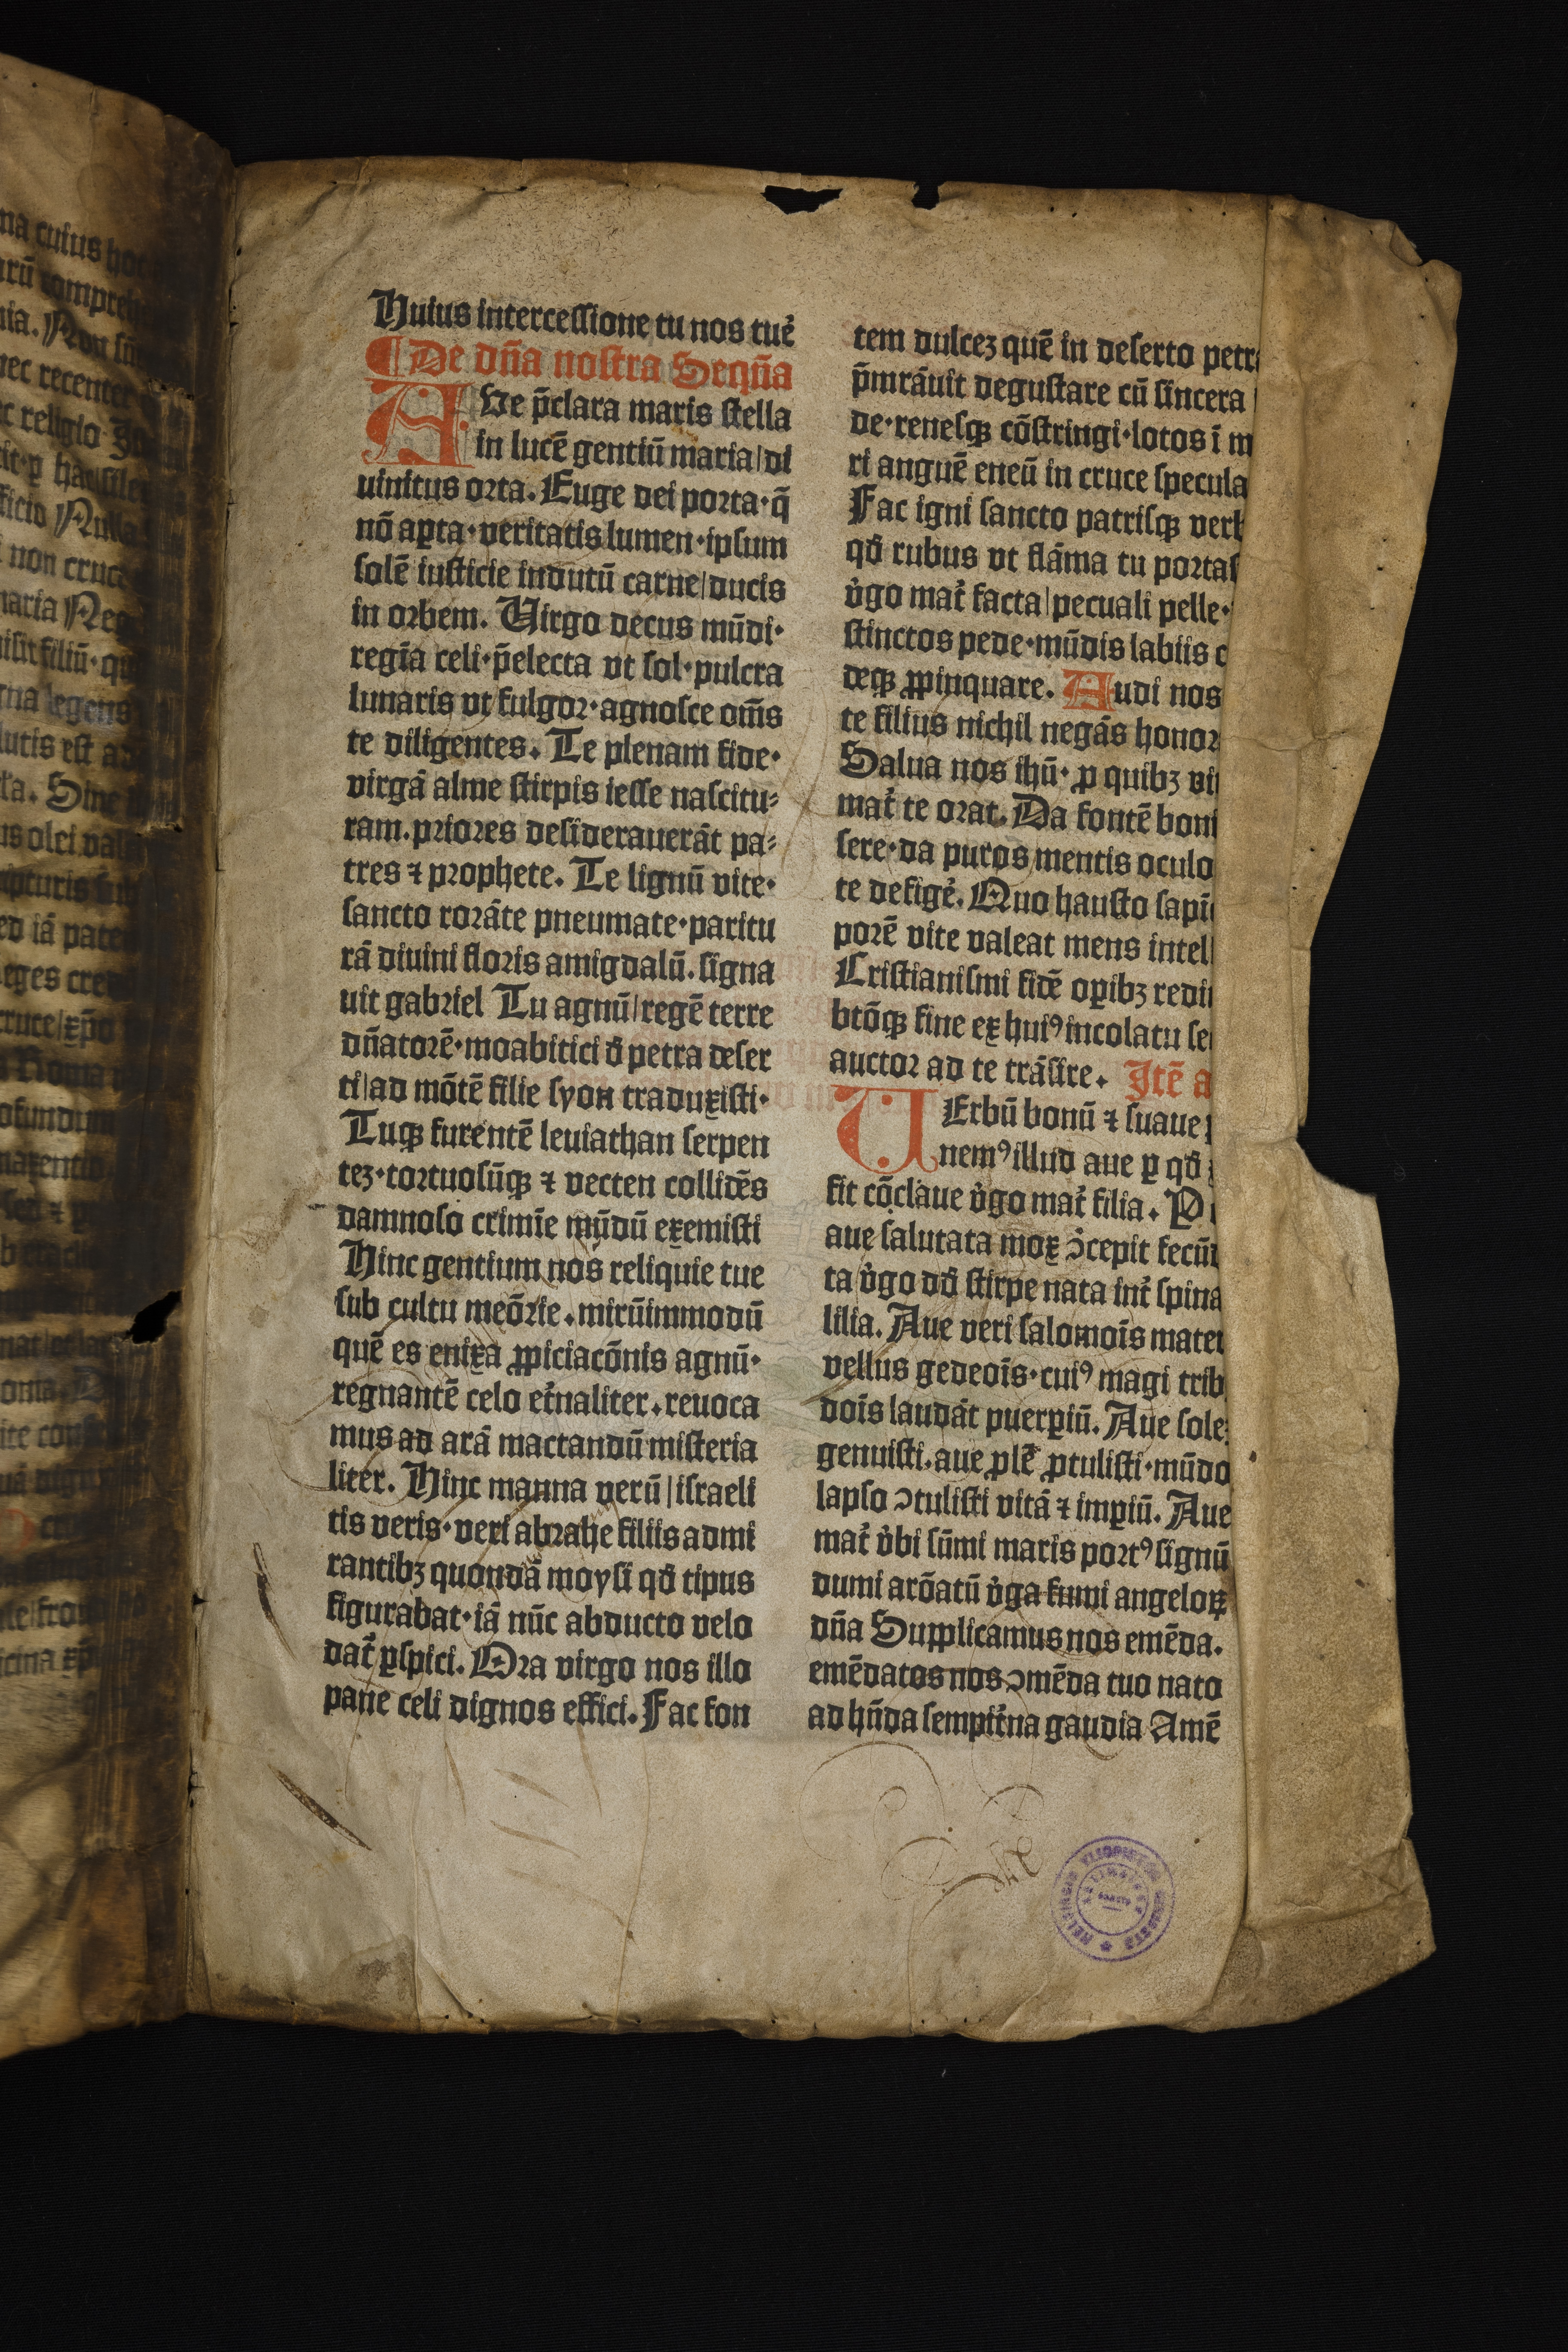 Huius intercessione tu nos tue᷑
¶ De dn̄a nostra Seqūa
AVe p̄clara maris stella
in lucē gentiū maria/di
uinitus orta. Euge dei porta·q̄
nō aꝑta·veritatis lumen·ipsum
solē iusticie indutū carne/ducis
in orbem. Uirgo decus mūdi·
regīa celi·p̄electa vt sol·pulcra
lunaris vt fulgor·agnosce om̄s
te diligentes. Te plenam fide·
virgā alme stirpis iesse nascitu⸗
ram.priores desiderauerāt pa⸗
tres ⁊ prophete. Te lignū vite·
sancto rorāte pneumate·paritu
rā diuini floris amigdalū.signa
uit gabriel Tu agnū/regē terre
dn̄atorē·moabitici đ petra deser
ti/ad mōtē filie syon traduxisti·
Tuqꝫ furentē leuiathan serpen
tez·tortuosūqꝫ ⁊ vecten collidēs
damnoso crimīe mūdū exemisti
Hinc gentium nos reliquie tue
sub cultu meōrie.mirūimmodū
quē es enixa ꝓpiciacōnis agnū·
regnantē celo et᷑naliter.reuoca
mus ad arā mactandū misteria
liter. Hinc manna verū/israeli
tis veris·veri abrahe filiis admi
rantibꝫ quondā moysi qđ tipus
figurabat·iā nūc abducto velo
dat᷑ ꝑspici. Ora virgo nos illo
pane celi dignos effici. Fac fon
tem dulcez quē in deserto petr
p̄mrāuit degustare cū sincera
de·renesqꝫ cōstringi·lotos ī m
ri anguē eneū in cruce specula
Fac igni sancto patrisqꝫ verb
qđ rubus vt flāma tu portas
v᷑go mat᷑ facta/pecuali pelle·
stinctos pede·mūdis labiis c
deqꝫ ꝓpinquare. Audi nos
te filius nichil negās honor
Salua nos ihū· ꝓ quibꝫ vi
mat᷑ te orat. Da fontē boni
sere·da puros mentis oculo
te defige᷑. Quo hausto sapī
porē vite valeat mens intel
Cristianismi fidē oꝑibꝫ redi
btōqꝫ fine ex huiꝰ incolatu se
auctor ad te trāsire. Itē a
UErbū bonū ⁊ suaue
nemꝰ illud aue ꝑ qđ
fit cōclaue v᷑go mat᷑ filia. P
aue salutata mox ↄ᷑cepit fecū
ta v᷑go dđ stirpe nata int᷑ spina
lilia. Aue veri salomoīs mater
vellus gedeoīs·cuiꝰ magi trib
doīs laudāt puerꝑiū. Aue sole
genuisti.aue ꝓlē ꝓtulisti·mūdo
lapso ↄtulisti vitā ⁊ imꝑiū. Aue
mat᷑ v᷑bi sūmi maris portꝰ signū
dumi arōatū v᷑ga fumi angeloꝝ
dn̄a Supplicamus nos emēda.
emēdatos nos ↄmēda tuo nato
ad hn̄da sempit᷑na gaudia Amē